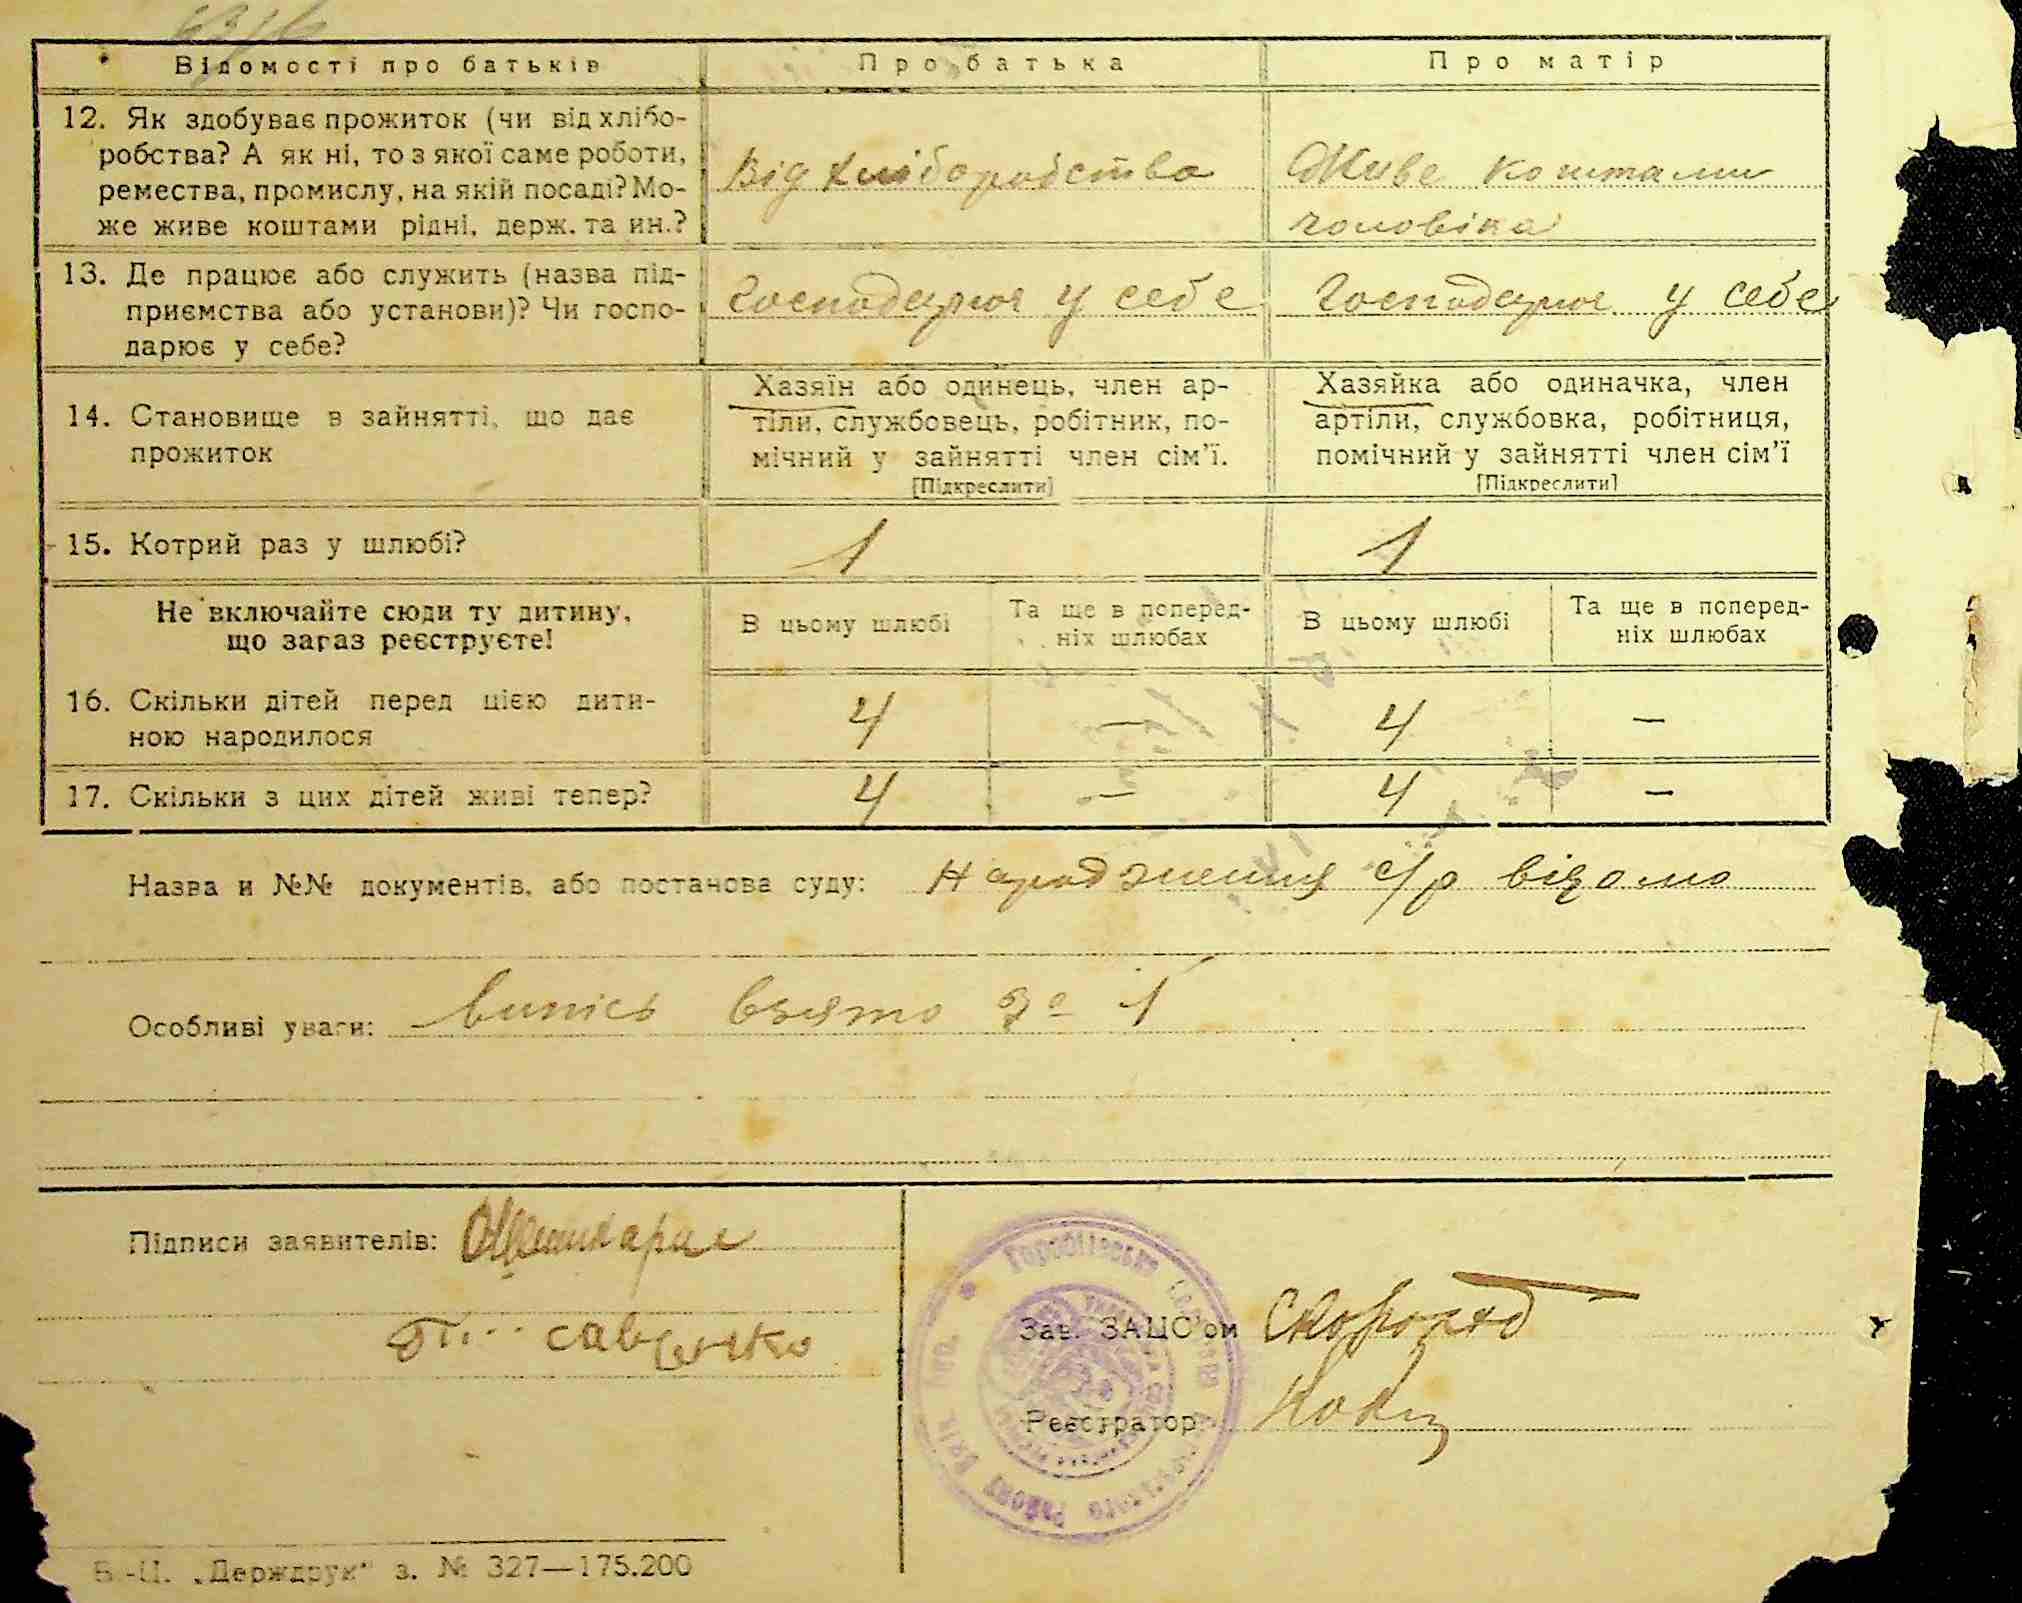 Відомості про батьків
Про батька
Про матір
12. Як здобуває прожиток (чи від хлібо-
робства? А як ні, то з якої саме роботи,
ремества, промислу, на якій посаді? Мо-
же живе коштами рідні, держ. та ин.?
Від хліборобства
Живе коштами
чоловіка
13. Де працює або служить (назва під-
приємства або установи)? Чи госпо-
дарює у себе?
Господарює у себе
Господарює у себе
14. Становище в зайнятті, що дає
прожиток
Хазяїн або одинець, член ар-
тіли, службовець, робітник, по-
мічний у зайнятті член сім'ї.
[Підкреслити]
Хазяйка або одиначка, член
артіли, службовка, робітниця,
помічний у зайнятті член сім'ї
[Підкреслити]
15. Котрий раз у шлюбі?
1
1
Не включайте сюди ту дитину,
що зараз реєструєте!
В цьому шлюбі
Та ще в поперед-
ніх шлюбах
В цьому шлюбі
Та ще в поперед-
ніх шлюбах
16. Скільки дітей перед цією дити-
ною народилося
4
—
4
—
17. Скільки з цих дітей живі тепер?
4
—
4
—
Назва и №№ документів, або постанова суду: Народження с/р відомо
Особливі уваги: випись взято за 1
Підписи заявителів:
савченко
Зав. ЗАЦС'ом Скороход
Реєстратор
району
"Держдрук" з. № 327—175.200